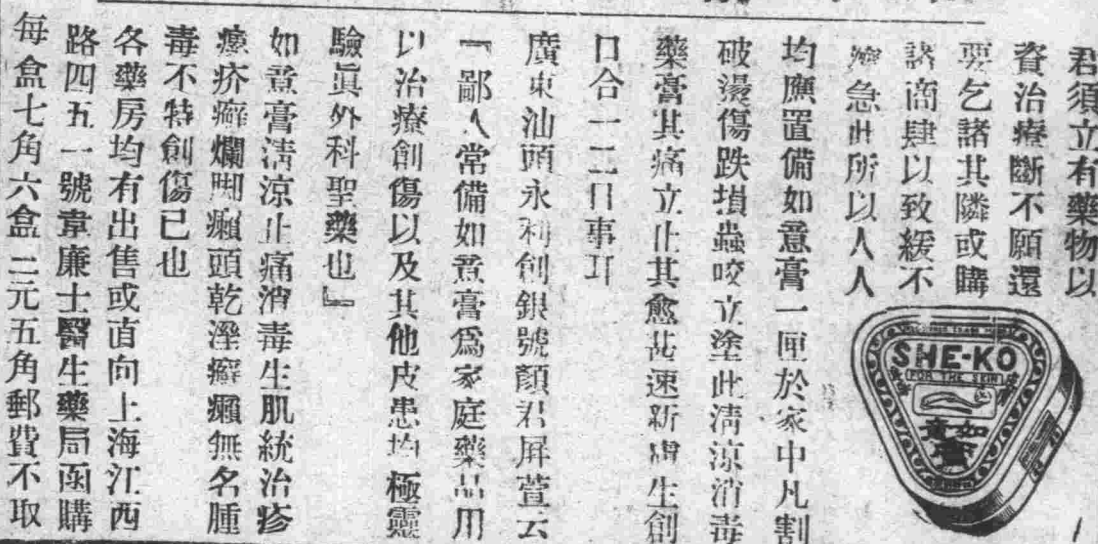 君須立有藥物以
資治療斷不願還
要乞諸其隣或購
諸商肆以致緩不
濟急此所以人人
均應置備如意膏一匣於家中凡割
破燙傷跌損蟲咬立塗此清涼消毒
藥膏其痛立止其愈甚速新膚生創
口合一二日事耳
廣東汕頭永利創銀號顏君屏萱云
『鄙人常備如意膏爲家庭藥品用
以治療創傷以及其他皮患均極靈
驗眞外科聖藥也』
如意膏清涼止痛消毒生肌統治疹
瘰疥癬爛脚癩頭乾溼癬癩無名腫
毒不特創傷已也
各藥房均有出售或直向上海江西
路四五一號韋廉士醫生藥局函購
每盒七角六盒二元五角郵費不取
SHE-KO
FOR THE SKIN
如意膏